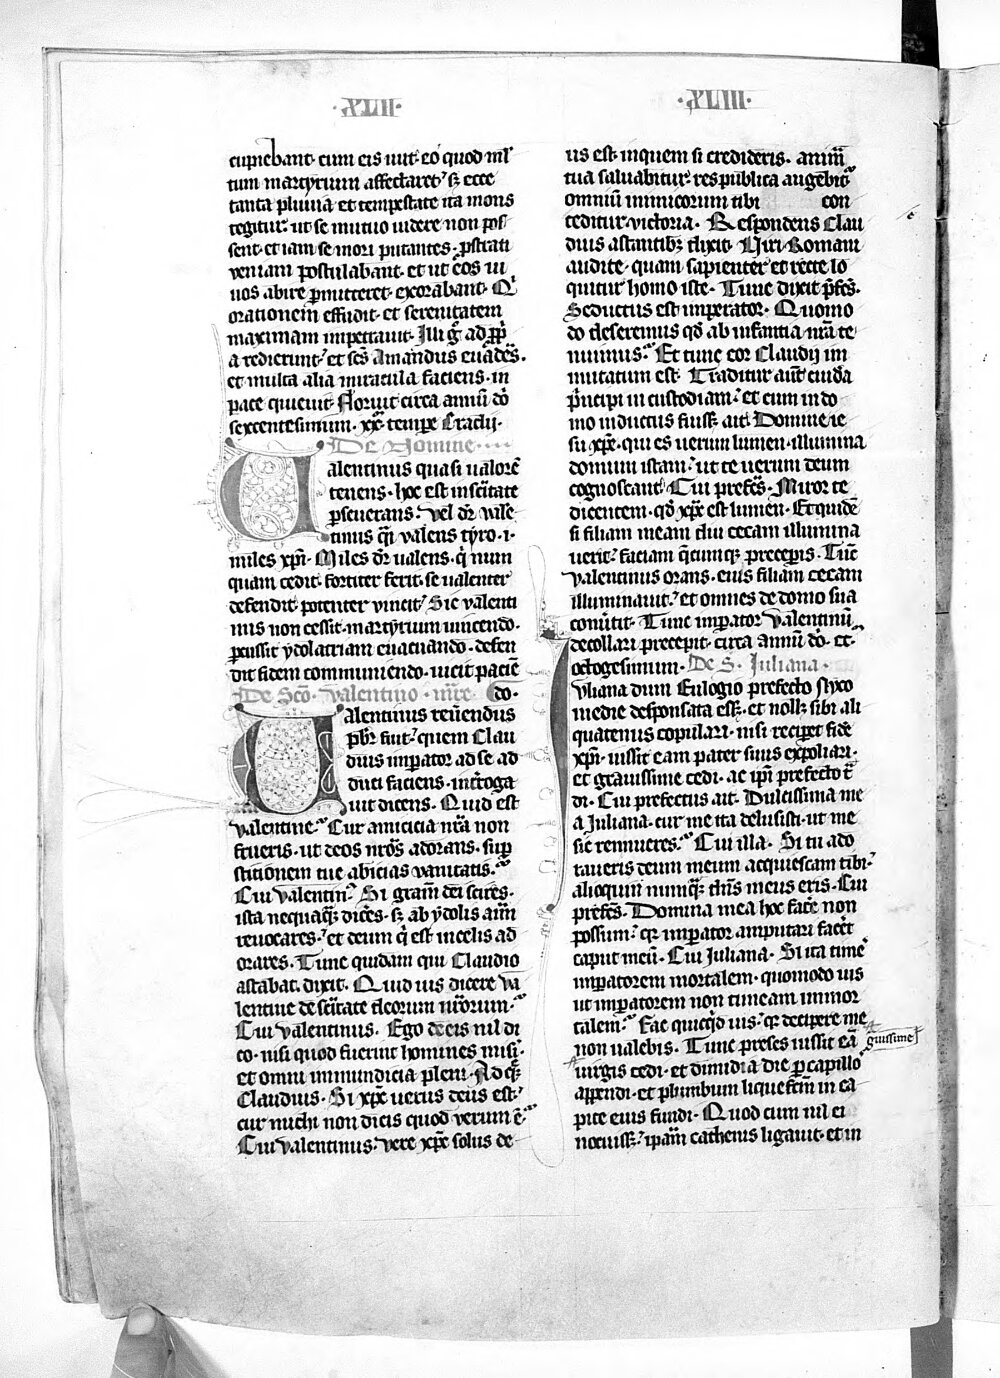 ·XLII·
cupiebant· cum eis iuit· eo quod ml̓
tum martyrium affectaret· sꝫ ecce
tanta pluuia et tempestate ita mons
tegitur· ut se mutuo uidere non pos
sent· et iam se mori putantes· ꝓstrati
ueniam postulabant· et ut eos ui
uos abire ꝑmitteret· exorabant· Qͥ
orationem effudit· et serenitatem
maximam impetrauit· Illi gͦ ad ꝓpͥ
a redierunt· et scs̄ Amandus euadēs·
et multa alia miracula faciens· in
pace quieuit· Floruit circa annū dō
sexcentesimum· xxͫ· tempe Eraclij·
De Nomine····
Ualentinus quasi ualorē
tenens· hoc est in scītate
ꝑseuerans· Vel dr̄ vale
tinus q̄i valens tyro· i·
miles xpī· Miles dr̄ ualens· qͥ num
quam cedit· fortiter ferit· se ualenter
defendit· potenter vincit· Sic valenti
nus non cessit· martyrium uincendo·
ꝑcussit ydolatriam euacuando· defen
dit fidem communiendo· uicit paciē
De Sc̄o· Valentino· mr̄e· do·
Ualentinus reuērendus
pb̄r fuit· quem Clau
dius imꝑator ad se ad
duci faciens· int̓roga
uit dicens· Quid est
valentine· Cur amicicia nr̄a non
frueris· ut deos nr̄os adorans· suꝑ
stitionem tue abicias uanitatis·
Cui Valentin᷒· Si gram̄ dei scires·
ista nequaq̄ꝫ diceēs· sꝫ ab ydolis aīm
reuocares· et deum qͥ est in celis ad
orares· Tunc quidam qui Claudio
astabat· dixit· Quid uis dicere Va
lentine de scītate deorum nr̄orum·
Cui Valentinus· Ego de eis nil di
co· nisi quod fuerint homines misͥ·
et omni immundicia pleni· Ad q̄ꝫ
Claudius· Si xp̄c uerus deus est·
cur michi non dicis quod verum ē·
Cui Valentinus· vere xp̄c solus de
·XLIII·
us est· in quem si credideris· anim̄
tua saluabitur· res publica augebit᷒
omniū inimicorum tibi con
ceditur uictoria· Respondens Clau
dius astantibꝫ dixit· Viri Romani
audite· quam sapienter et recte lo
quitur homo iste· Tunc dixit p̄fēs·
Seductus est imperator· Quomo
do deseremus qd̄ ab infantia nr̄a te
nuimus· Et tunc cor Claudij im
mutatum est· Traditur aut̄ cuidā
pͥncipi in custodiam· et cum in do
mo inductus fuissꝫ· ait· Domine ie
su xp̄e· qui es uerum lumen· illumina
domum istam· ut te uerum deum
cognoscant· Cui prefēs· Miror te
dicentem· qd̄ xp̄c est lumen· Et quidē
si filiam meam diu cecam illumina
uerit· faciam q̄cumqꝫ preceꝑis· Tūc
Valentinus orans· eius filiam cecam
illuminauit· et omnes de domo sua
conūtit· Tunc imꝑator Valentinū
decollari precepit· circa annū dō· cc·
octogesimum· De S· Juliana·
Yliana dum Eulogio prefecto Nyco
medie desponsata essꝫ· et nollꝫ sibi ali
quatenus copulari· nisi reciꝑet fidē
xpī· iussit eam pater suus expoliari·
et grauissime cedi· ac ipī prefecto t̄
di· Cui prefectus ait· Dulcissima me
a Juliana· cur me ita delusisti· ut me
sic rennueres· Cui illa· Si tu ado
raueris deum meum acquiescam tibi·
alioquin numq̄ꝫ dn̄s meus eris· Cui
prefēs· Domina mea hoc facͤe non
possum· qꝛ imꝑator amputari facͤet
caput meū· Cui Juliana· Si ita timeͨ
imꝑatorem mortalem· quomodo uis
ut imꝑatorem non timeam immor
talem· Fac quicqͥd uis· qꝛ deciꝑe me
non ualebis· Tunc preses iussit eā
guissime
uirgis cedi· et dimidia die ꝑ capillos
appendi· et plumbum liquefcm̄ in ca
pite eius fundi· Quod cum nil ei
nocuissꝫ· ipam̄ cathenis ligauit· et in